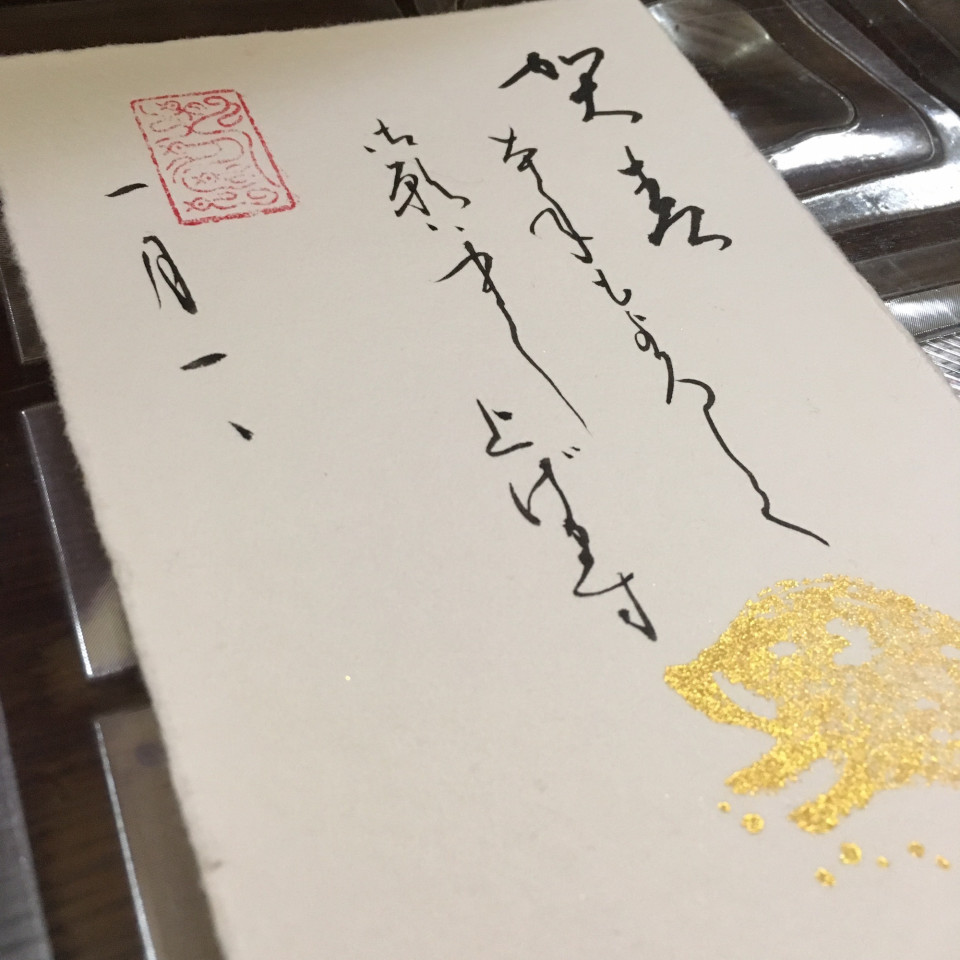 賀春
本年もよろしく
お願い申し
上げます
一月一、